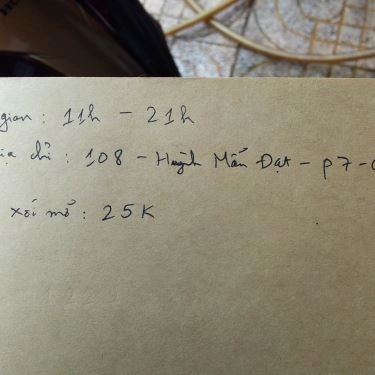 gian : 11h - 21h
ịa chỉ : 108 - Huỳnh Mẫn Đạt - P7 -
xối mỡ : 25K